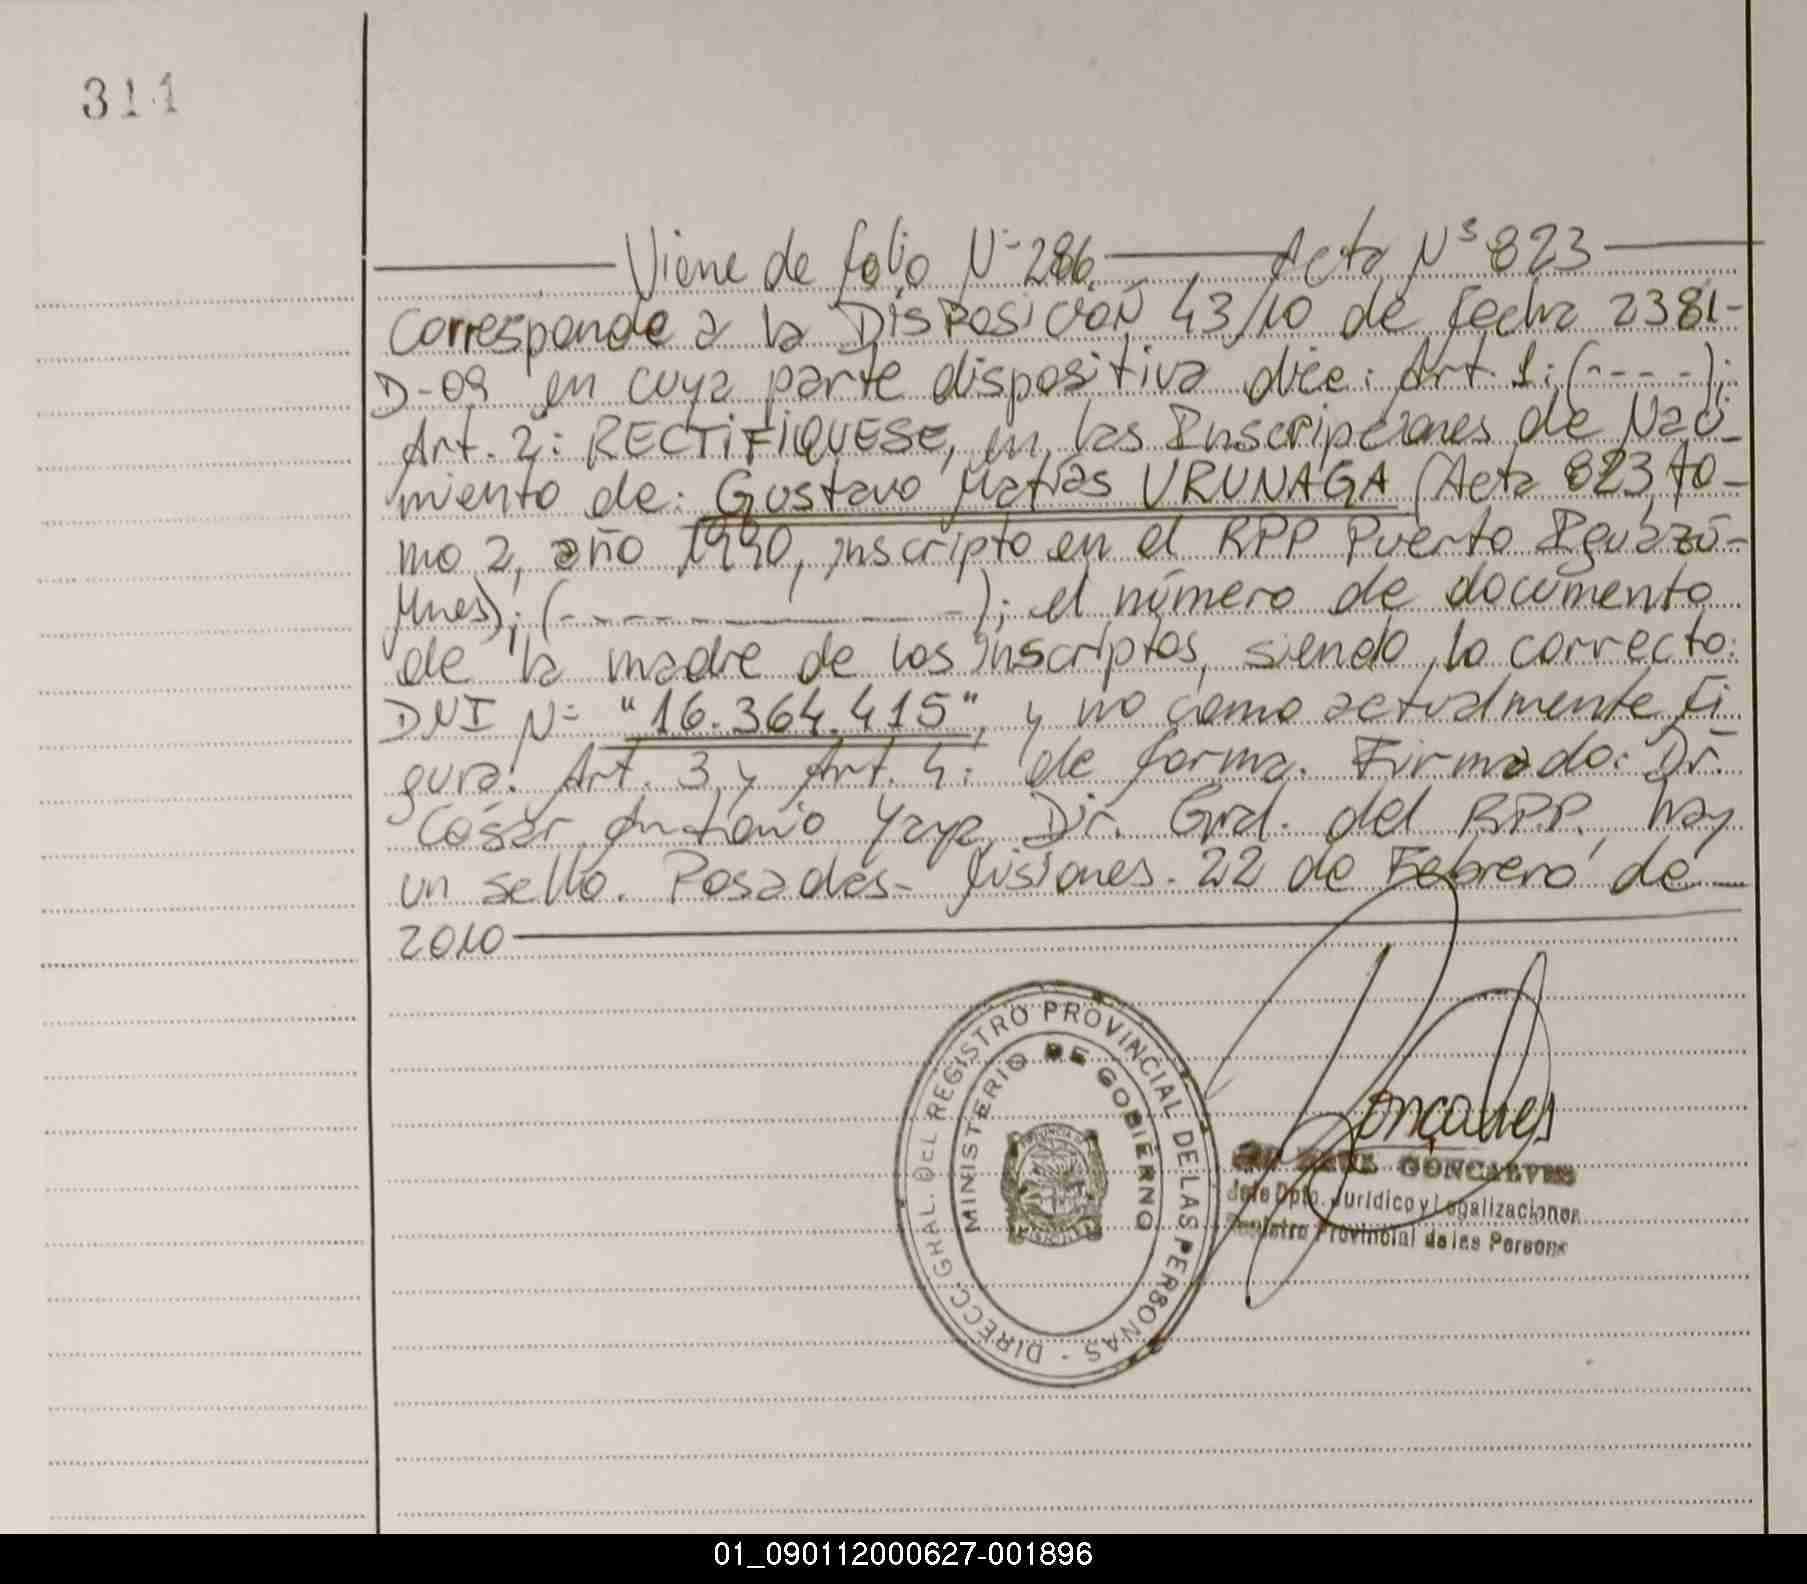 311
Viene de folio Nº 286 Acta Nº 823
Corresponde a la DISPOSICION 43/10 de fecha 2381-
D-09 en cuya parte dispositiva dice: Art. 1: (----);
Art. 2: RECTIFIQUESE, en las Inscripciones de Naci-
miento de: Gustavo Matías URUNAGA (Acta 823, to-
mo 2, año 1990, inscripto en el RPP Puerto Iguazú-
Mnes); (- - - - - - -); el número de documento
de la madre de los inscriptos, siendo lo correcto:
DNI Nº "16.364.415", y no como actualmente fi
gura. Art. 3 y Art. 4: de forma. Firmado: Dr.
César Antonio Yaya, Dir. Gral. del RPP, hay
un sello. Posadas- Misiones. 22 de Febrero de
2010
DIRECC. GRAL. DEL REGISTRO PROVINCIAL DE LAS PERSONAS -
MINISTERIO DE GOBIERNO
Goncalves
GONCALVES
Jefe Dpto. Jurídico y Legalizaciones
Registro Provincial de las Personas
01_090112000627-001896